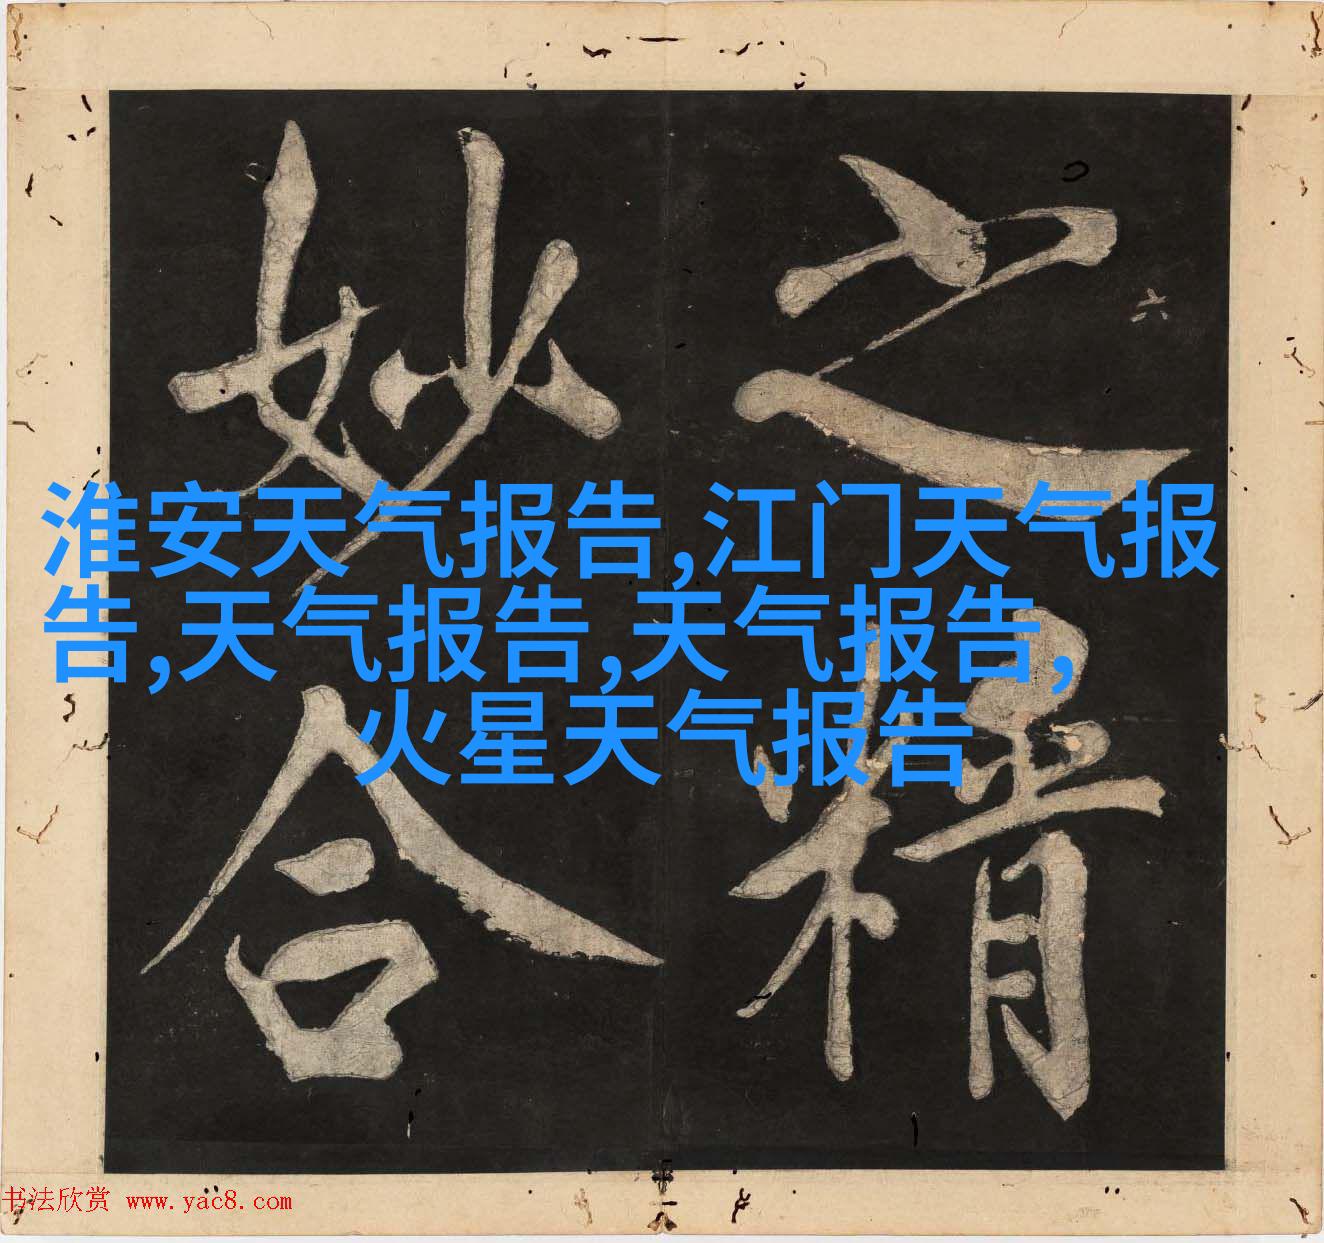 之精
妙合
六
淮安天气报告,江门天气报
告,天气报告,天气报告,
火星天气报告
书法欣赏 www.yac8.com